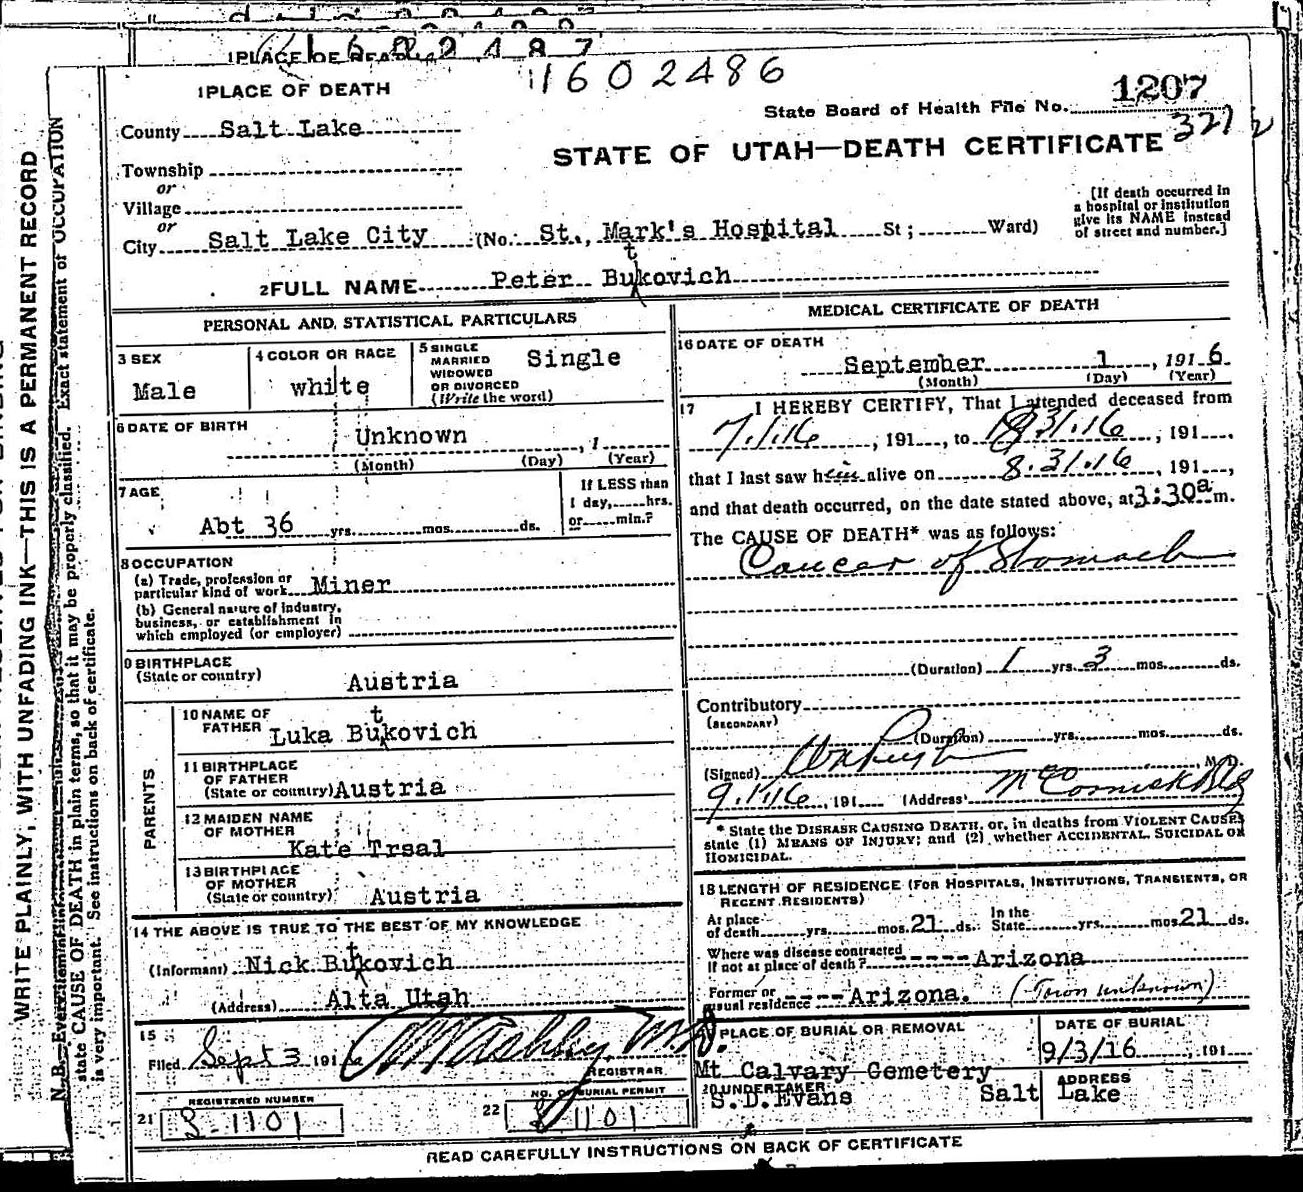 1 6 0 2 4 8 7
1 PLACE OF DEATH
1602486
1 PLACE OF DEATH
State Board of Health File No. 1207
County Salt Lake
STATE OF UTAH—DEATH CERTIFICATE
Township
or
Village
or
City Salt Lake City (No. St., Mark's Hospital St; Ward)
[If death occurred in
a hospital or institution
give its NAME instead
of street and number.]
t
2 FULL NAME Peter Bukovich
PERSONAL AND STATISTICAL PARTICULARS
3 SEX
Male
4 COLOR OR RACE
white
5 SINGLE
MARRIED
WIDOWED
OR DIVORCED
(Write the word)
Single
6 DATE OF BIRTH
Unknown , 1
(Month) (Day) (Year)
7 AGE
Abt 36 yrs. mos. ds.
If LESS than
1 day, hrs.
or min.?
8 OCCUPATION
(a) Trade, profession or
particular kind of work Miner
(b) General nature of industry,
business, or establishment in
which employed (or employer)
9 BIRTHPLACE
(State or country)
Austria
PARENTS
10 NAME OF
FATHER
t
Luka Bukovich
11 BIRTHPLACE
OF FATHER
(State or country) Austria
12 MAIDEN NAME
OF MOTHER
Kate Trsal
13 BIRTHPLACE
OF MOTHER
(State or country) Austria
14 THE ABOVE IS TRUE TO THE BEST OF MY KNOWLEDGE
t
(Informant) Nick Bukovich
(Address) Alta Utah
15
Filed Sept 3 1916
REGISTRAR
REGISTERED NUMBER
21 S-1101
NO. OF BURIAL PERMIT
22 S-1101
MEDICAL CERTIFICATE OF DEATH
16 DATE OF DEATH
September 1 , 1916
(Month) (Day) (Year)
17 I HEREBY CERTIFY, That I attended deceased from
7.1.16 , 191 , to 8.31.16 , 191 .
that I last saw him alive on 8.31.16 , 191 ,
and that death occurred, on the date stated above, at 3:30a m.
The CAUSE OF DEATH* was as follows:
Cancer of Stomach
(Duration) 1 yrs. 3 mos. ds.
Contributory
(SECONDARY)
(Duration) yrs. mos. ds.
(Signed) , M.D.
9.1.16 , 191 (Address) McCornick Bldg
* State the DISEASE CAUSING DEATH, or, in deaths from VIOLENT CAUSES
state (1) MEANS OF INJURY; and (2) whether ACCIDENTAL, SUICIDAL OR
HOMICIDAL.
18 LENGTH OF RESIDENCE (FOR HOSPITALS, INSTITUTIONS, TRANSIENTS, OR
RECENT RESIDENTS)
At place
of death yrs. mos. 21 ds. In the
State yrs. mos. 21 ds.
Where was disease contracted
if not at place of death? -----Arizona
Former or
usual residence ----Arizona. (Town unknown)
19 PLACE OF BURIAL OR REMOVAL
Mt Calvary Cemetery
DATE OF BURIAL
9/3/16 , 191
20 UNDERTAKER
S.D.Evans
ADDRESS
Salt Lake
READ CAREFULLY INSTRUCTIONS ON BACK OF CERTIFICATE
WRITE PLAINLY, WITH UNFADING INK—THIS IS A PERMANENT RECORD
state CAUSE OF DEATH in plain terms, so that it may be properly classified. Exact statement of OCCUPATION
is very important. See instructions on back of certificate.